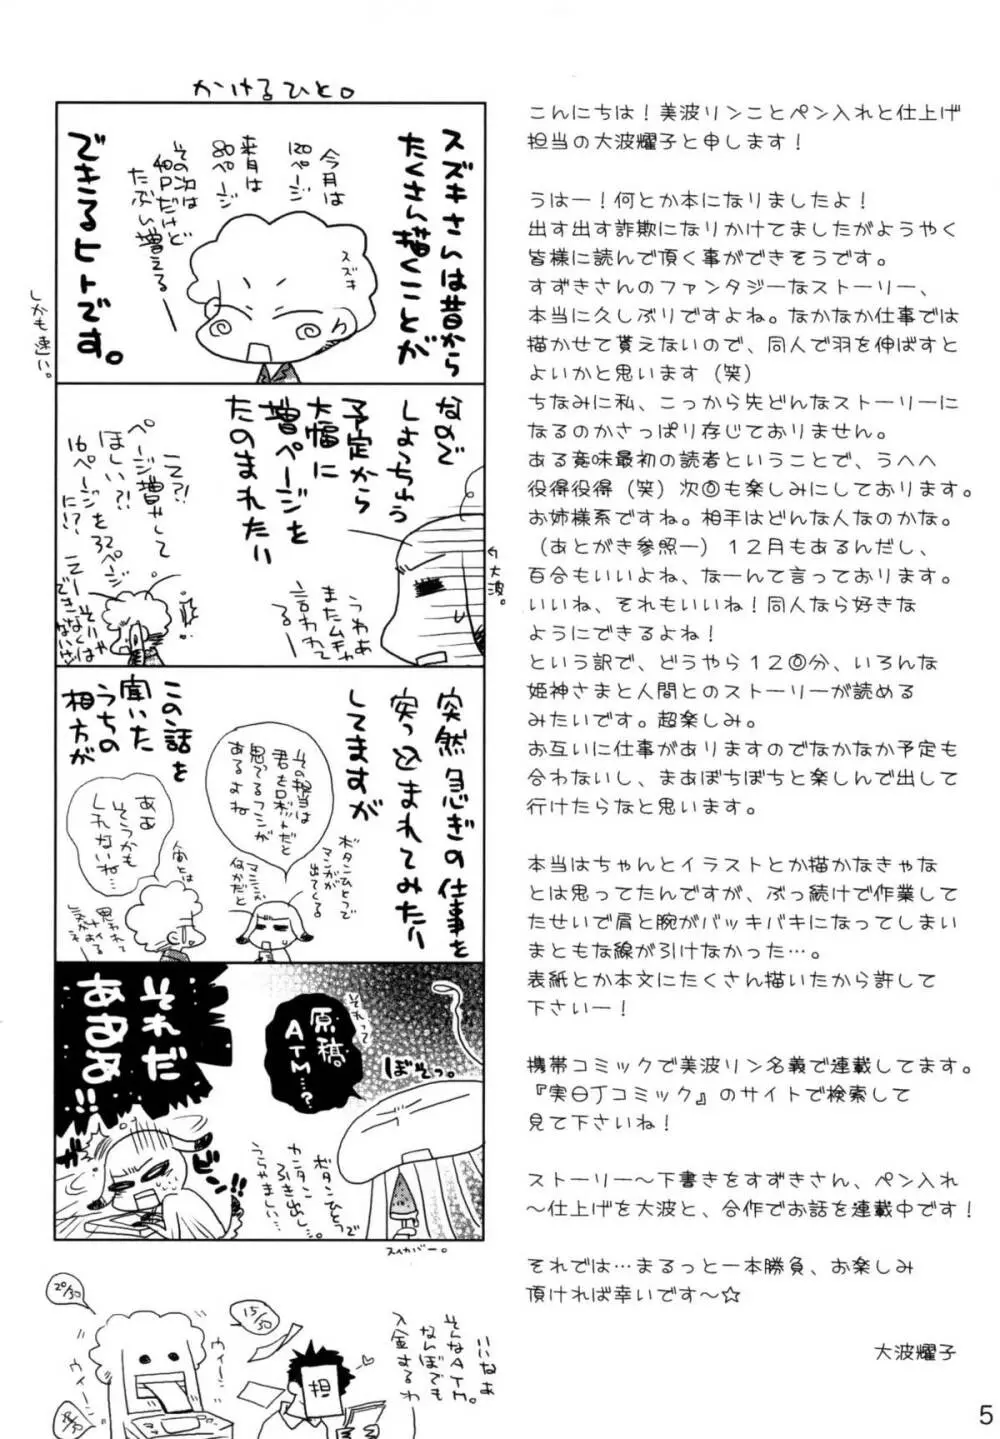 かけるひと。
スズキさんは昔から
たくさん描くことが
できるヒトです。
しかも速い。
今月は
120ページ
来月は
80ページ
その次は
40Pだけど
たぶん増える
スズキ
なので
しょっちゅう
予定から
大幅に
増ページを
たのまれたい
うわあ
またムチャ
言われて
る
大波。
えっ?!
ページ増やして
ほしい?!
16ページを32ページ
に!?
突然急ぎの仕事を
突っ込まれてみたい
してますが
この話を
聞いた
うちの
相方が
その担当は
君をロボットだと
思ってるフシが
あるよね
ボタンひとつで
マンガが
出てくる
ああ
そうかも
しれないね…
それって
原稿
ATM…?
ぼそっ。
それだ
あああ
!!
ガッ
ビーン!!
ボタンひとつで
カンタン
ひき出し…。
うらやましい…
スイカバー。
20/30
15/30
ウィーン
ウィーン
担
いいなぁ
そんなATM。
なんぼでも
入金するわ
こんにちは！美波リンことペン入れと仕上げ
担当の大波耀子と申します！
うはー！何とか本になりましたよ！
出す出す詐欺になりかけてましたがようやく
皆様に読んで頂く事ができそうです。
すずきさんのファンタジーなストーリー、
本当に久しぶりですよね。なかなか仕事では
描かせて貰えないので、同人で羽を伸ばすと
よいかと思います（笑）
ちなみに私、こっから先どんなストーリーに
なるのかさっぱり存じておりません。
ある意味最初の読者ということで、うへへ
役得役得（笑）次回も楽しみにしております。
お姉様系ですね。相手はどんな人なのかな。
（あとがき参照ー）１２月もあるんだし、
百合もいいよね、なーんて言っております。
いいね、それもいいね！同人なら好きな
ようにできるよね！
という訳で、どうやら１２回分、いろんな
姫神さまと人間とのストーリーが読める
みたいです。超楽しみ。
お互いに仕事がありますのでなかなか予定も
合わないし、まあぼちぼちと楽しんで出して
行けたらなと思います。
本当はちゃんとイラストとか描かなきゃな
とは思ってたんですが、ぶっ続けで作業して
たせいで肩と腕がバッキバキになってしまい
まともな線が引けなかった…。
表紙とか本文にたくさん描いたから許して
下さいー！
携帯コミックで美波リン名義で連載してます。
『実日Jコミック』のサイトで検索して
見て下さいね！
ストーリー～下書きをすずきさん、ペン入れ
～仕上げを大波と、合作でお話を連載中です！
それでは…まるっと一本勝負、お楽しみ
頂ければ幸いです～☆
大波耀子
5